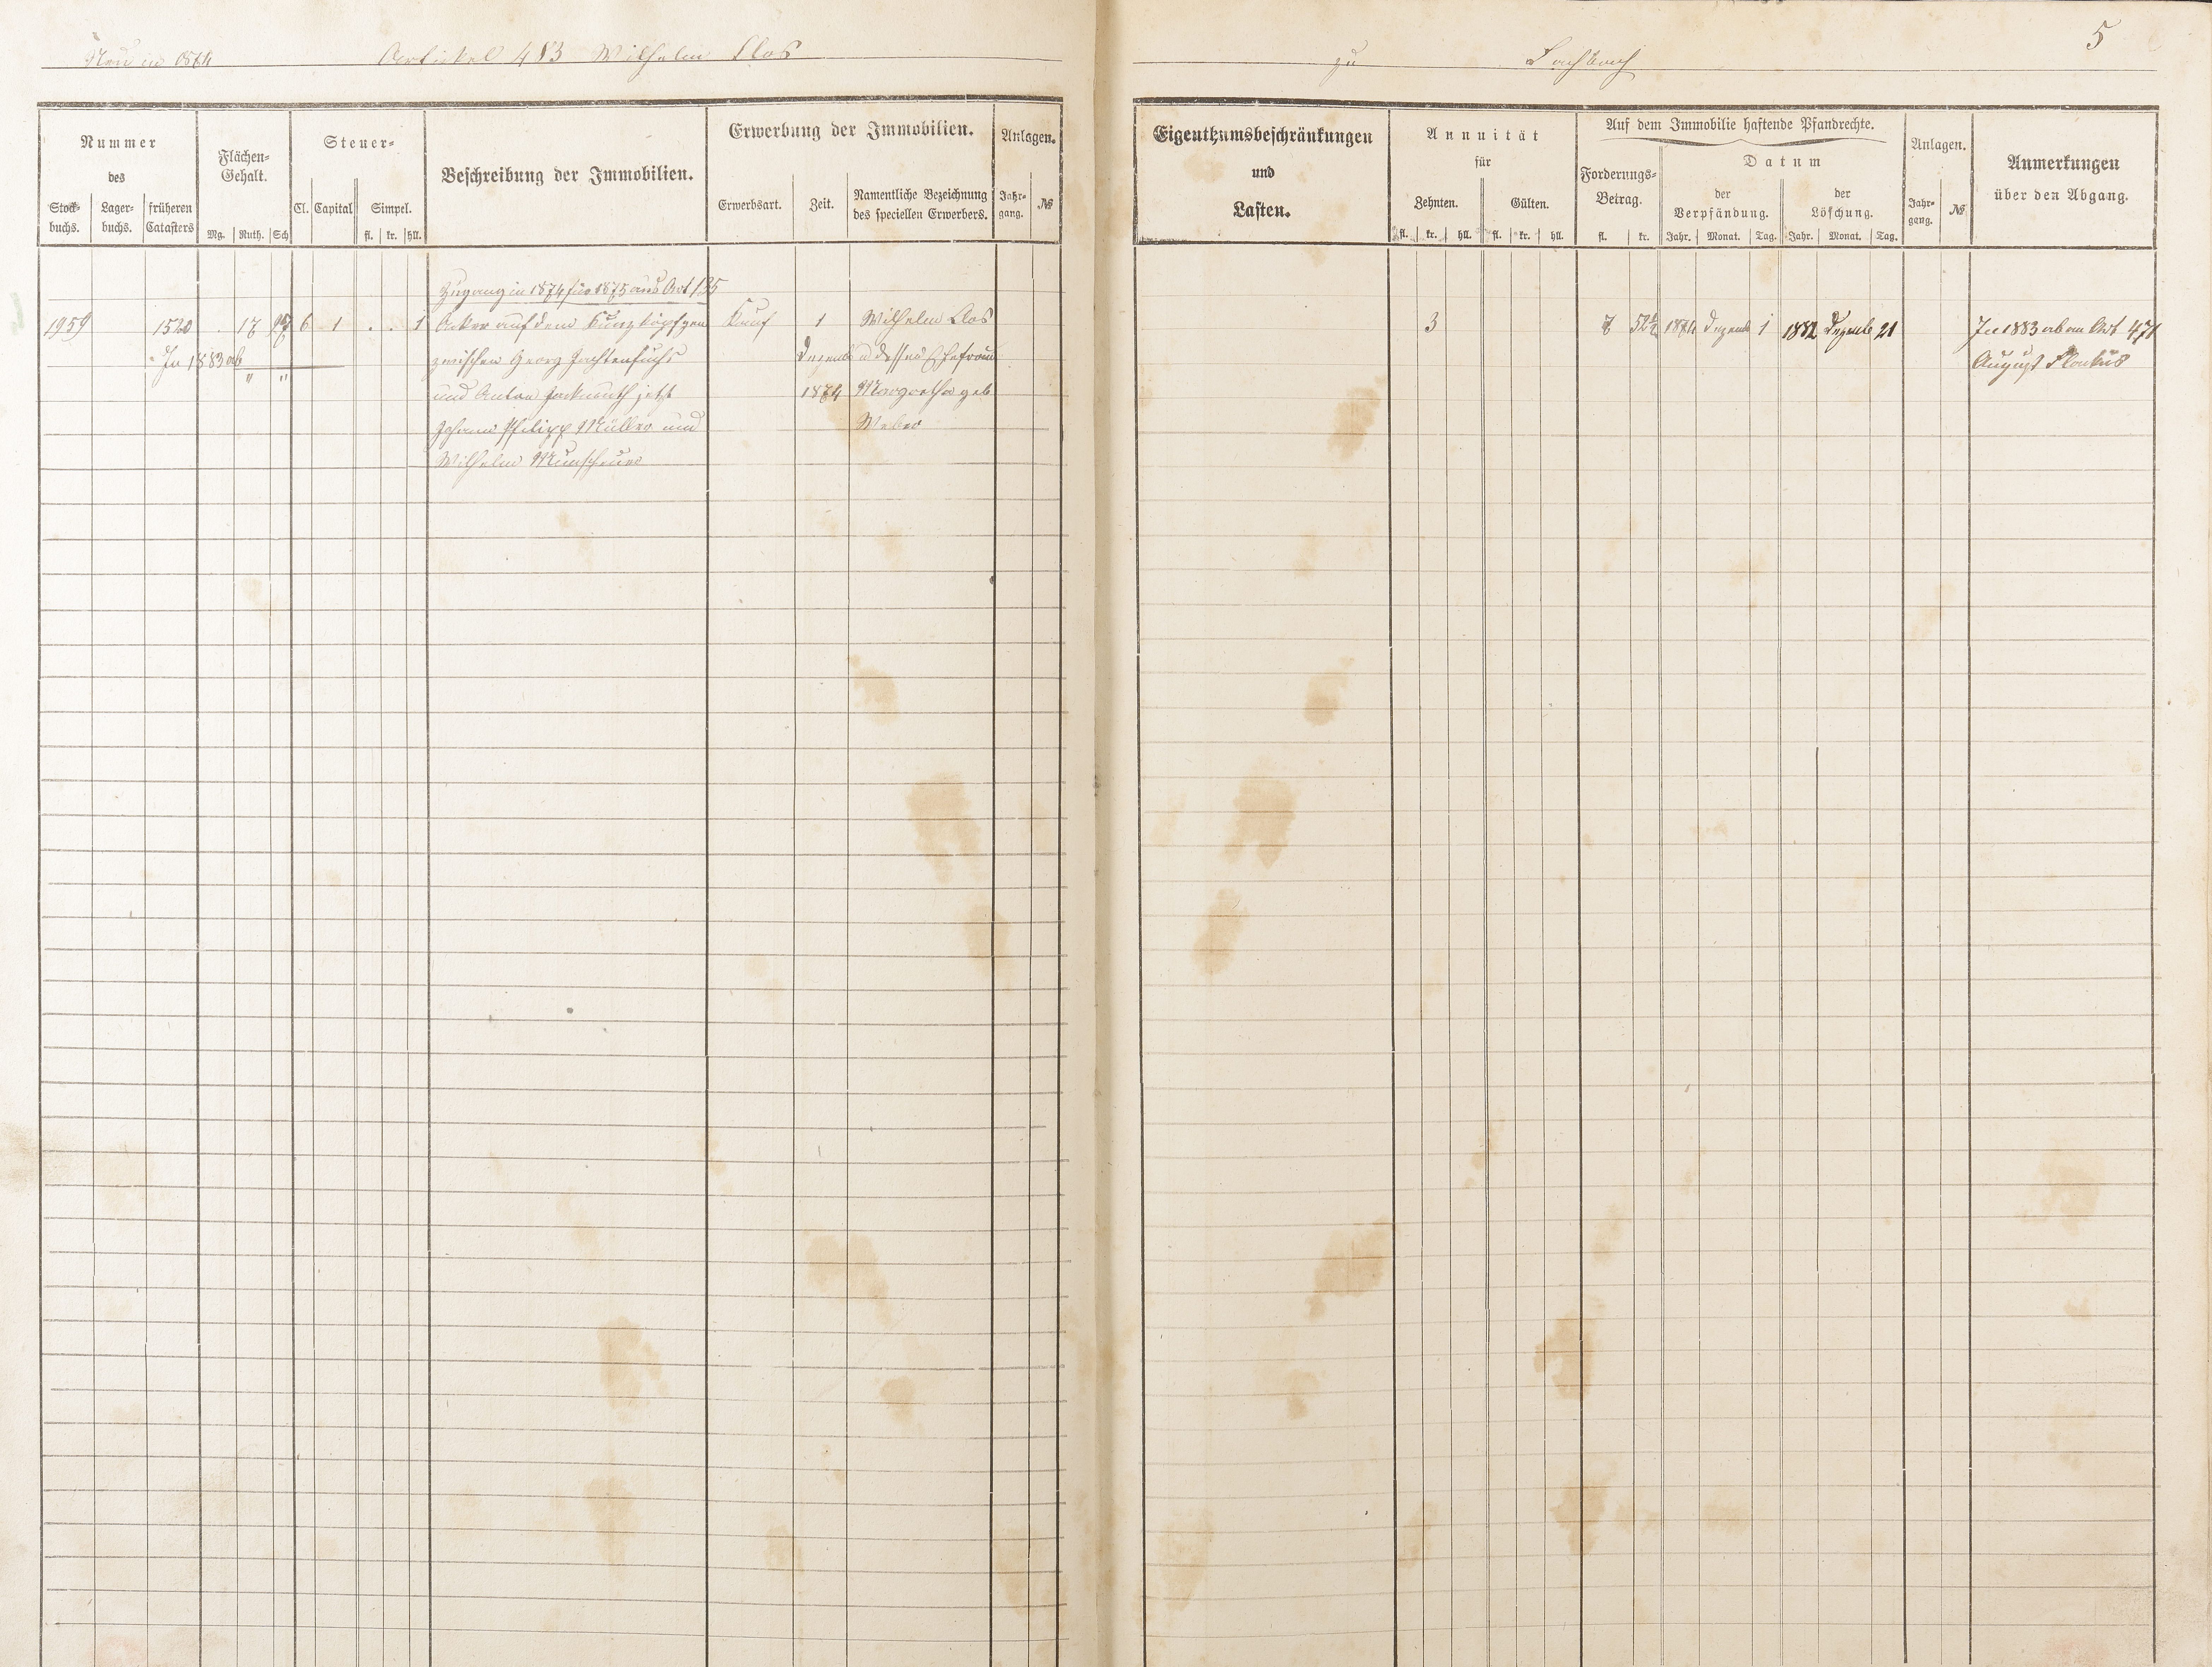 Neu in 1874 Artikel 483 Wilhelm Clos
zu
5
Nummer
des
Stock-
buchs.
Lager-
buchs.
früheren
Catasters
Flächen-
Gehalt.
Mg. Ruth. Sch
Steuer-
Cl. Capital Simpel.
fl. kr. hll.
Beschreibung der Immobilien.
Erwerbung der Immobilien.
Erwerbsart. Zeit.
Namentliche Bezeichnung
des speciellen Erwerbers.
Anlagen.
Jahr-
gang.
№
Eigenthumsbeschränkungen
und
Lasten.
Annuität
für
Zehnten. Gülten.
fl. kr. hll. fl. kr. hll.
Auf dem Immobilie haftende Pfandrechte.
Forderungs-
Betrag.
fl. kr.
Datum
der
Verpfändung.
der
Löschung.
Jahr. Monat. Tag. Jahr. Monat. Tag.
Anlagen.
Jahr-
gang.
№
Anmerkungen
über den Abgang.
Zugang in 1874 für 1875 aus Art 135
1959 1520 . 17 6 1 . . 1 Acker auf dem Kauf 1 Wilhelm Clos 3 7 52½ 1874 Dezemb 1 1882 Dezemb 21 In 1883 ab an Art 471
In 1883 ab " " zwischen Georg Dezemb u dessen Ehefrau August
und Anton jetzt 1874 Margretha geb
Johann Philipp Müller und Weber
Wilhelm